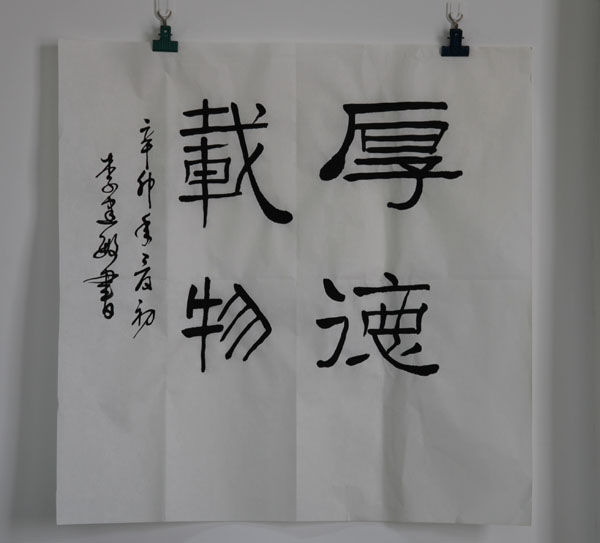 厚德
載物
辛卯年夏初
李建書